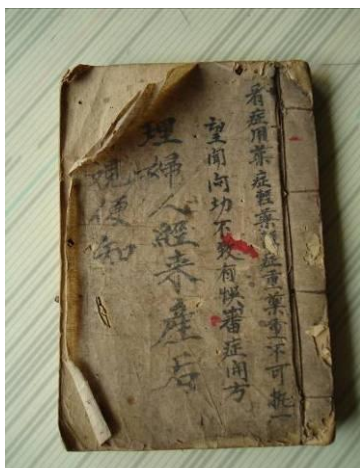 看症用藥症輕藥輕症重藥重不可執一
望聞问切不致有悮審症開方
理婦人經來產后
覌便知